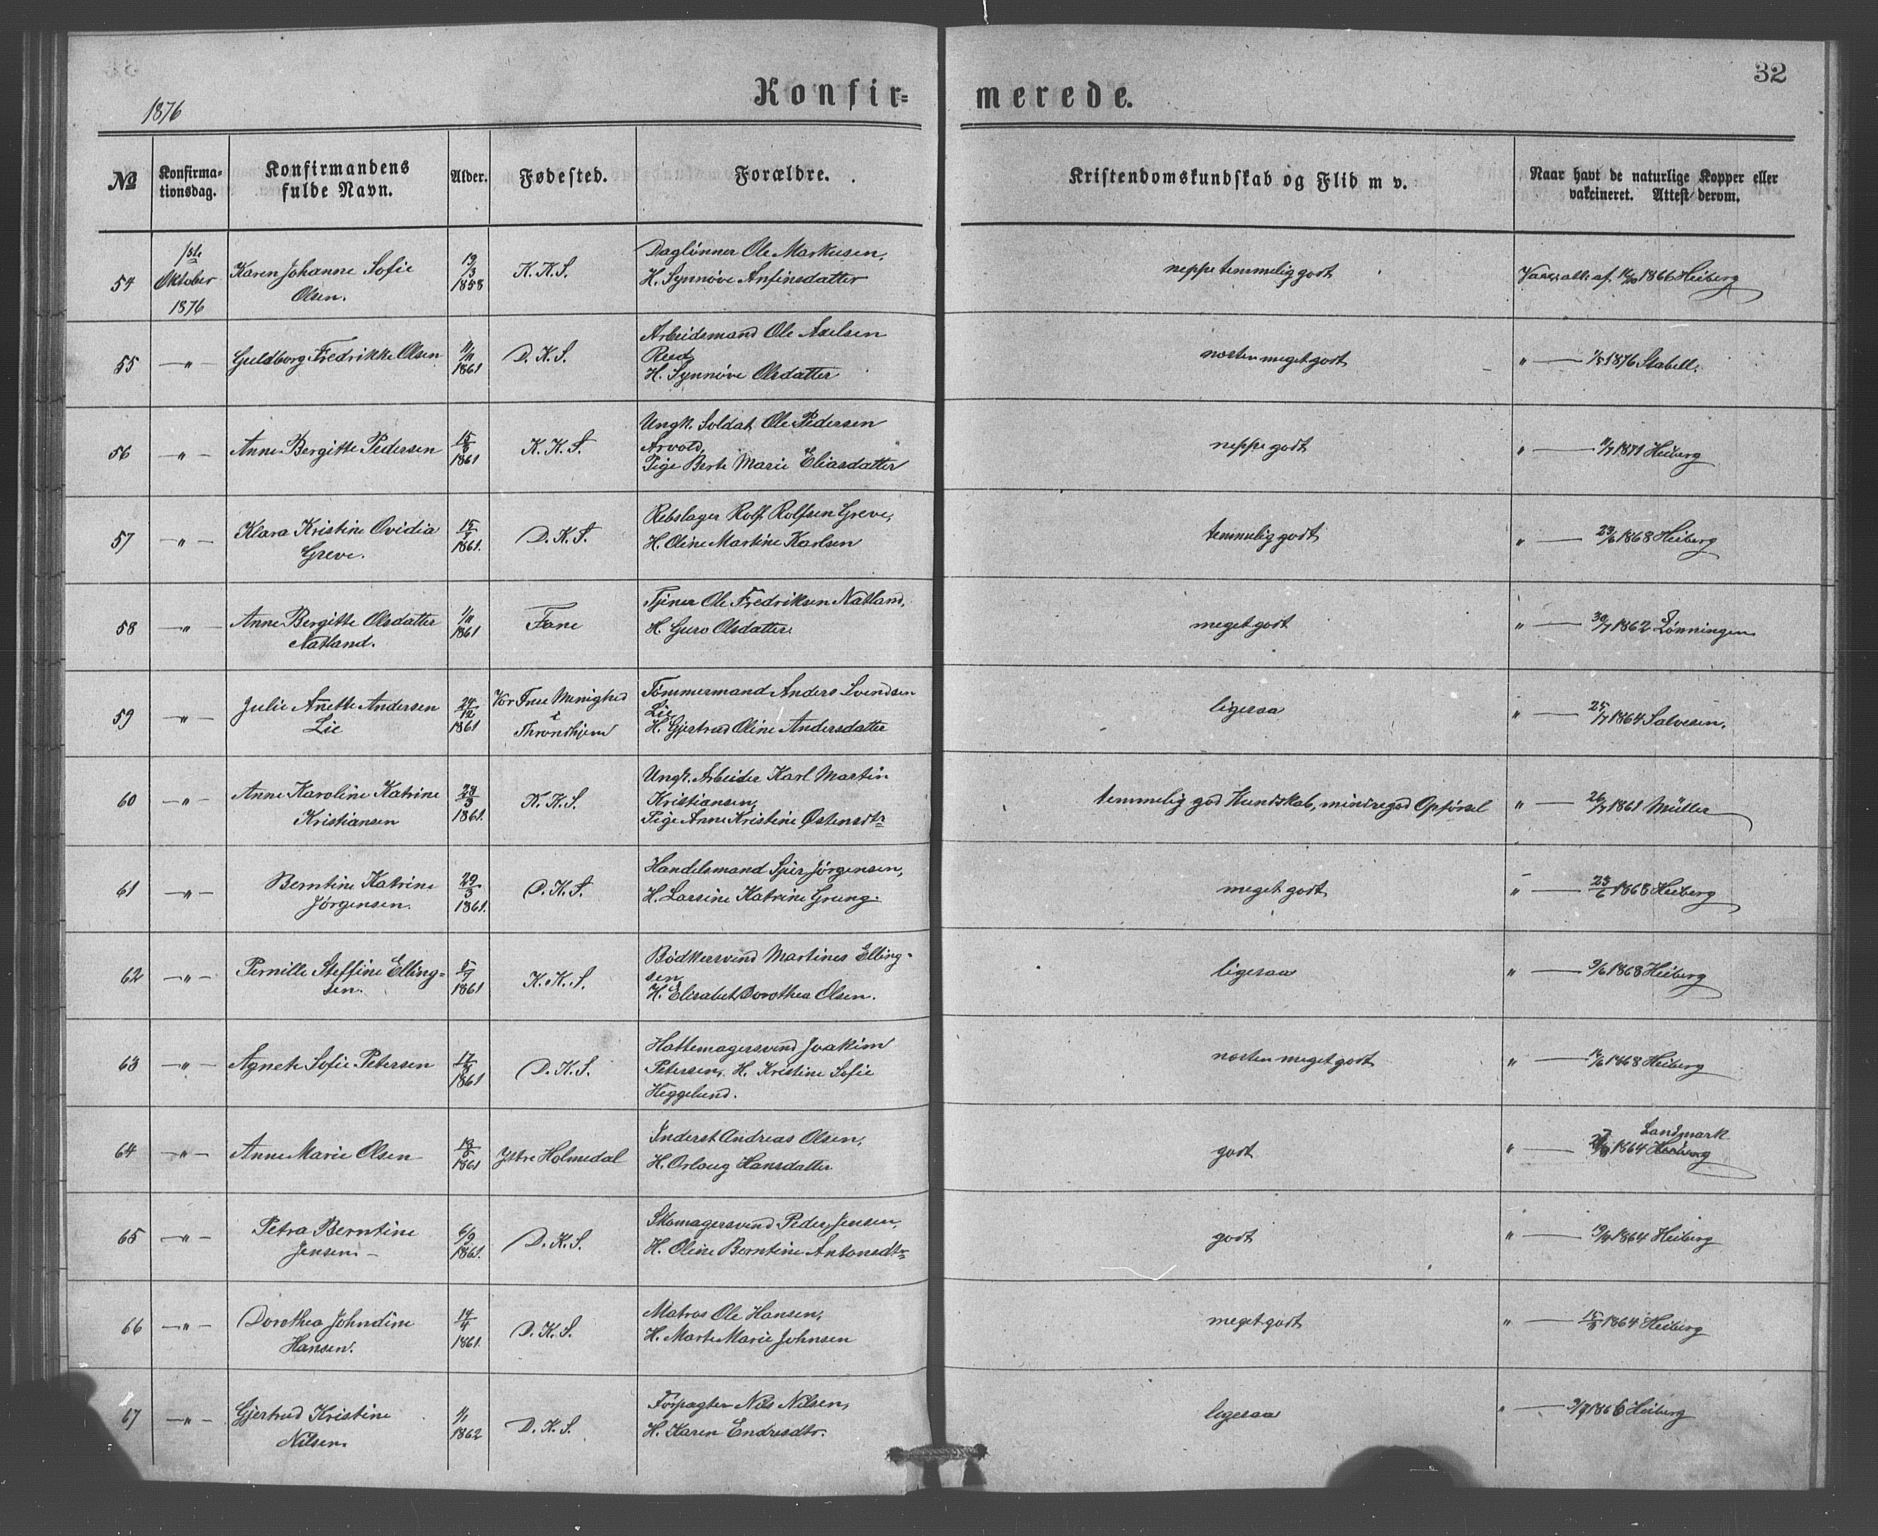 32
1876
Konfir=
merede.
No
Konfirma-
tionsdag.
Konfirmandens
fulde Navn.
Alder.
Fødested.
Forældre.
Kristendomskundskab og Flid m v.
Naar havt de naturlige Kopper eller
vakcineret. Attest derom.
54
1ste
Oktober
1876
Karen Johanne Sofie
Olsen.
19/3
1858
K. K. S.
Daglønner Ole Markusen,
H. Synnøve Anfinsdatter
neppe temmelig godt
1866 Heiberg
55
— " —
Guldborg Fredrikke Olsen
1861
D. K. S.
Arbeidsmand Ole Axelsen
H. Synnøve Olsdatter
næsten meget godt
" — 1876 Stabell.
56
— " —
Anne Bergitte Pedersen
1861
K. K. S.
Ungk. Soldat Ole Pedersen
Arvold,
Pige Berte Marie Eliasdatter
neppe godt
" — 1871 Heiberg
57
— " —
Klara Kristine Ovidia
Greve.
1861.
D. K. S.
Rebslager Rolf Rolfsen Greve,
H. Oline Martine Karlsen
temmelig godt
" — 23/6 1868 Heiberg
58
— " —
Anne Bergitte Olsdatter
Natland.
1861
Fane
Tjener Ole Fredriksen Natland,
H. Guro Olsdatter.
meget godt
" — 30/7 1862 Lønningen
59
— " —
Julie Anette Andersen
Lie
24/12
1861
Vor Frue Menighed
i
Throndhjem
Tømmermand Anders Svendsen
Lie,
H. Gjertrud Oline Andersdatter
ligesaa
" — 25/7 1864 Salvesen,
60
— " —
Anne Karoline Katrine
Kristiansen
28/3
1861.
K. K. S.
Ungk. Arbeider Karl Martin
Kristiansen,
Pige Anne Kristine Østensdtr
temmelig god Kundskab, mindre god Opførsel
" — 26/7 1861 Müller
61
— " —
Berntine Katrine
Jørgensen.
29/3
1861.
D. K. S.
Handelsmand Sjur Jørgensen,
H. Larsine Katrine Grung.
meget godt
" — 23/6 1868 Heiberg
62
— " —
Pernille Steffine Elling-
sen.
5/7
1861
K. K. S.
Bødkersvend Martines Elling-
sen,
H. Elisabet Dorothea Olsen.
ligesaa
" — 9/6 1868 Heiberg
63
— " —
Agnete Sofie Petersen
1861
D. K. S.
Hattemagersvend Joakim
Petersen, H. Kristine Sofie
Heggelund.
næsten meget godt
" — 1868 Heiberg
64
— " —
Anne Marie Olsen
1861
Ytre Holmedal
Inderst Andreas Olsen,
H. Orloug Hansdatter
godt
Landmark
" — 1864 Heiberg
65
— " —
Petra Berntine
Jensen. —
6/9
1861.
D. K. S.
Skomagersvend Peder Jensen,
H. Oline Berntine Antonsdtr
godt
" — 1864 Heiberg
66
— " —
Dorothea Johndine
Hansen.
14/4
1861.
D. K. S.
Matros Ole Hansen,
H. Marte Marie Johnsen
meget godt
" — 1864 Heiberg
67
— " —
Gjertrud Kristine
Nilsen.
1/1
1862
D. K. S.
Forpagter Nils Nilsen,
H. Karen Endresdtr.
ligesaa
" — 9/7 1866 Heiberg